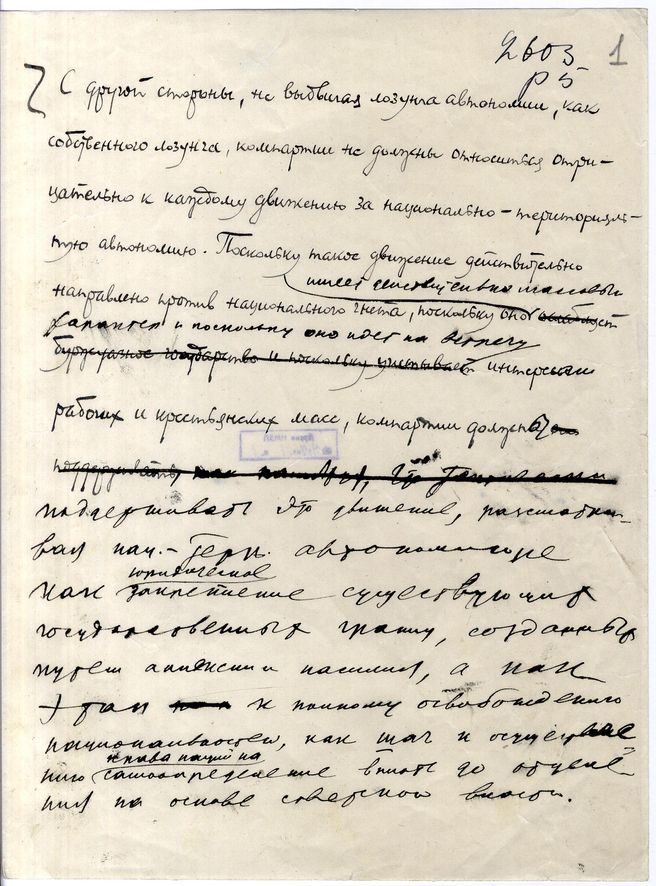 2603
р 5
1
С другой стороны, не выдвигая лозунга автономии, как
собственного лозунга, компартии не должны относиться отри-
цательно к каждому движению за национально-территориаль-
ную автономию. Поскольку такое движение действительно
имеет действительно массовый
направлено против национального гнета, поскольку оно
характер и поскольку оно идет на встречу
буржуазное государство и поскольку учитывает интересам
рабочих и крестьянских масс, компартии должны
поддерживать
поддерживать это движение, рассматри-
вая нац.-терр. автономию не
юридическое
как закрепление существующих
государственных границ, созданных
путем аннексии и насилия, а как
этап к полному освобождению
национальностей, как шаг к осуществле
права наций на
нию самоопределение вплоть до отделе-
ния на основе советской власти.